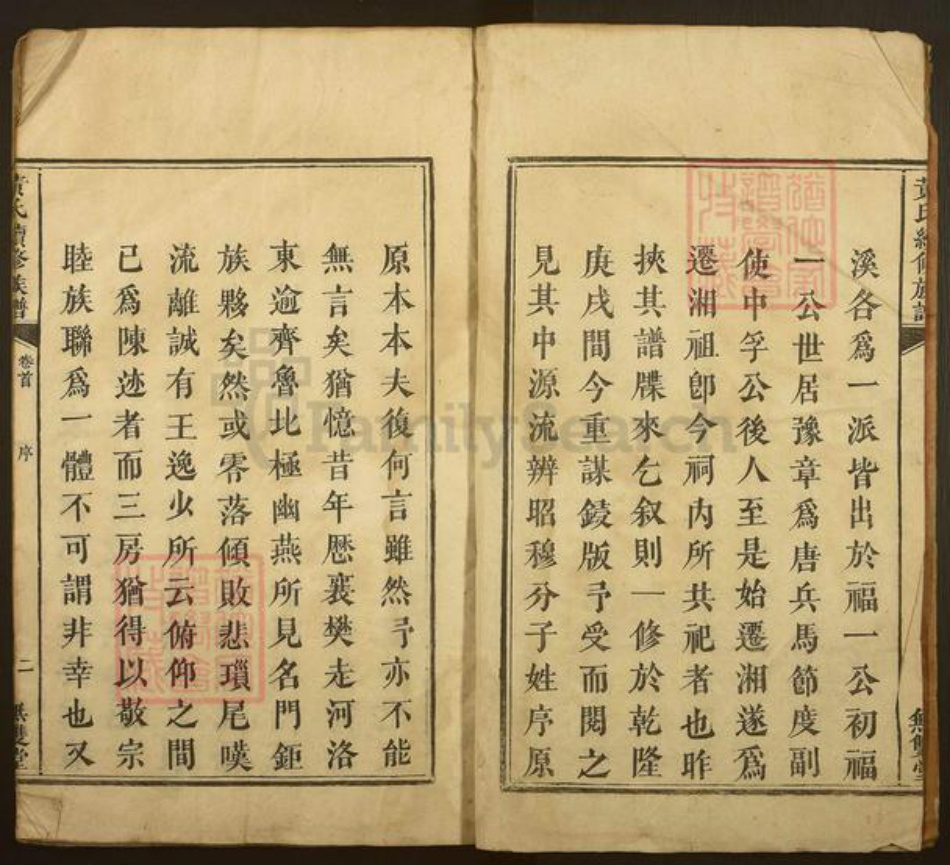 溪各爲一派皆出於福一公初福
一公世居豫章爲唐兵馬節度副
使中孚公後人至是始遷湘遂爲
遷湘祖卽今祠內所共祀者也昨
挾其譜牒來乞叙則一修於乾隆
庚戌間今重謀鋟版予受而閱之
見其中源流辨昭穆分子姓序原
原本本夫復何言雖然予亦不能
無言矣猶憶昔年歷襄樊走河洛
東逾齊魯北極幽燕所見名門鉅
族夥矣然或零落傾敗悲瑣尾嘆
流離誠有王逸少所云俯仰之間
已爲陳迹者而三房猶得以敬宗
睦族聯爲一體不可謂非幸也又
黃氏續修族譜
卷首
序
二
無雙堂
FamilySearch